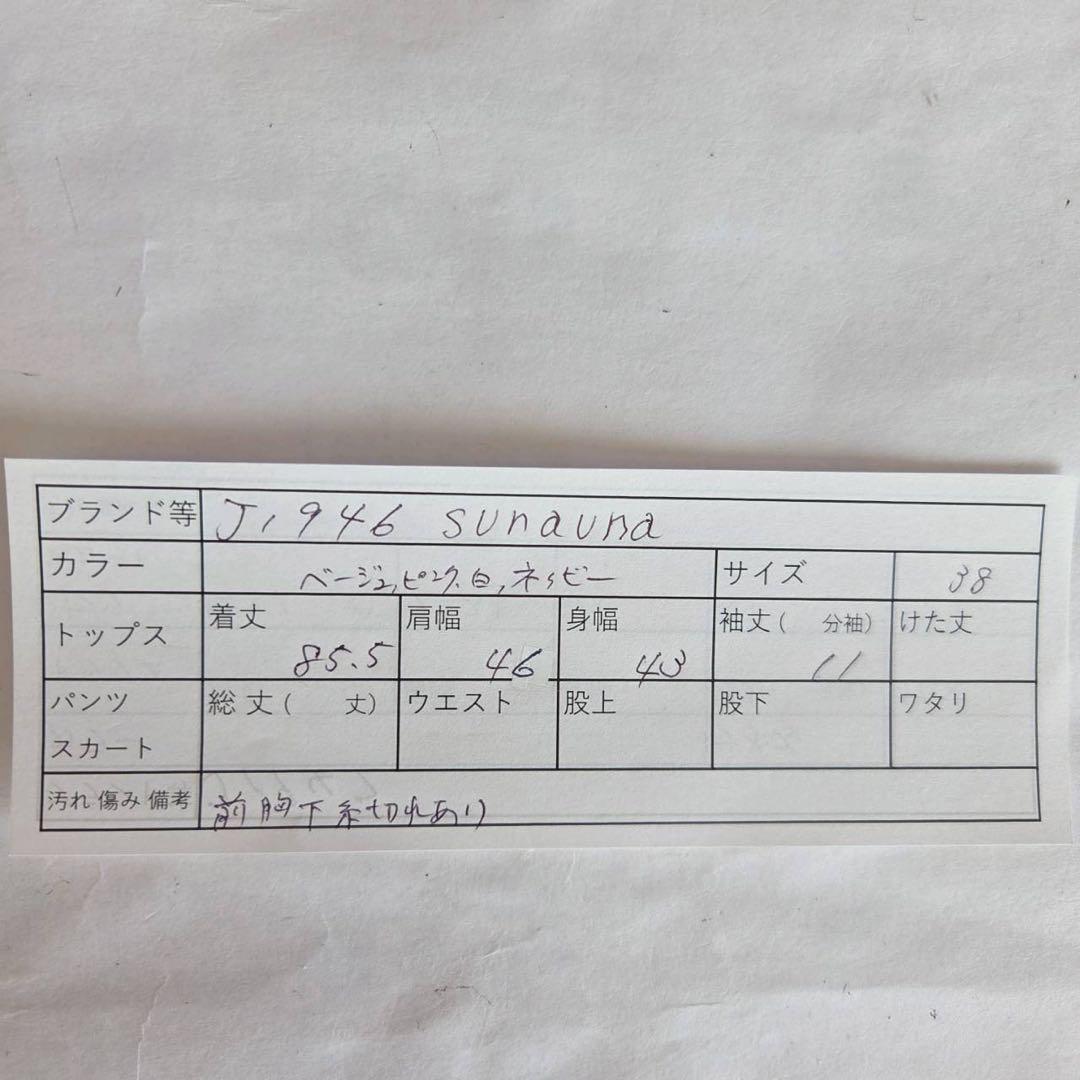 ブランド等 J1946 sunauna
カラー ベージュ,ピンク,白,ネイビー サイズ 38
トップス 着丈 85.5 肩幅 46 身幅 43 袖丈( 分袖) 11 けた丈
パンツ スカート 総丈( 丈) ウエスト 股上 股下 ワタリ
汚れ 傷み 備考 前胸下糸切れあり